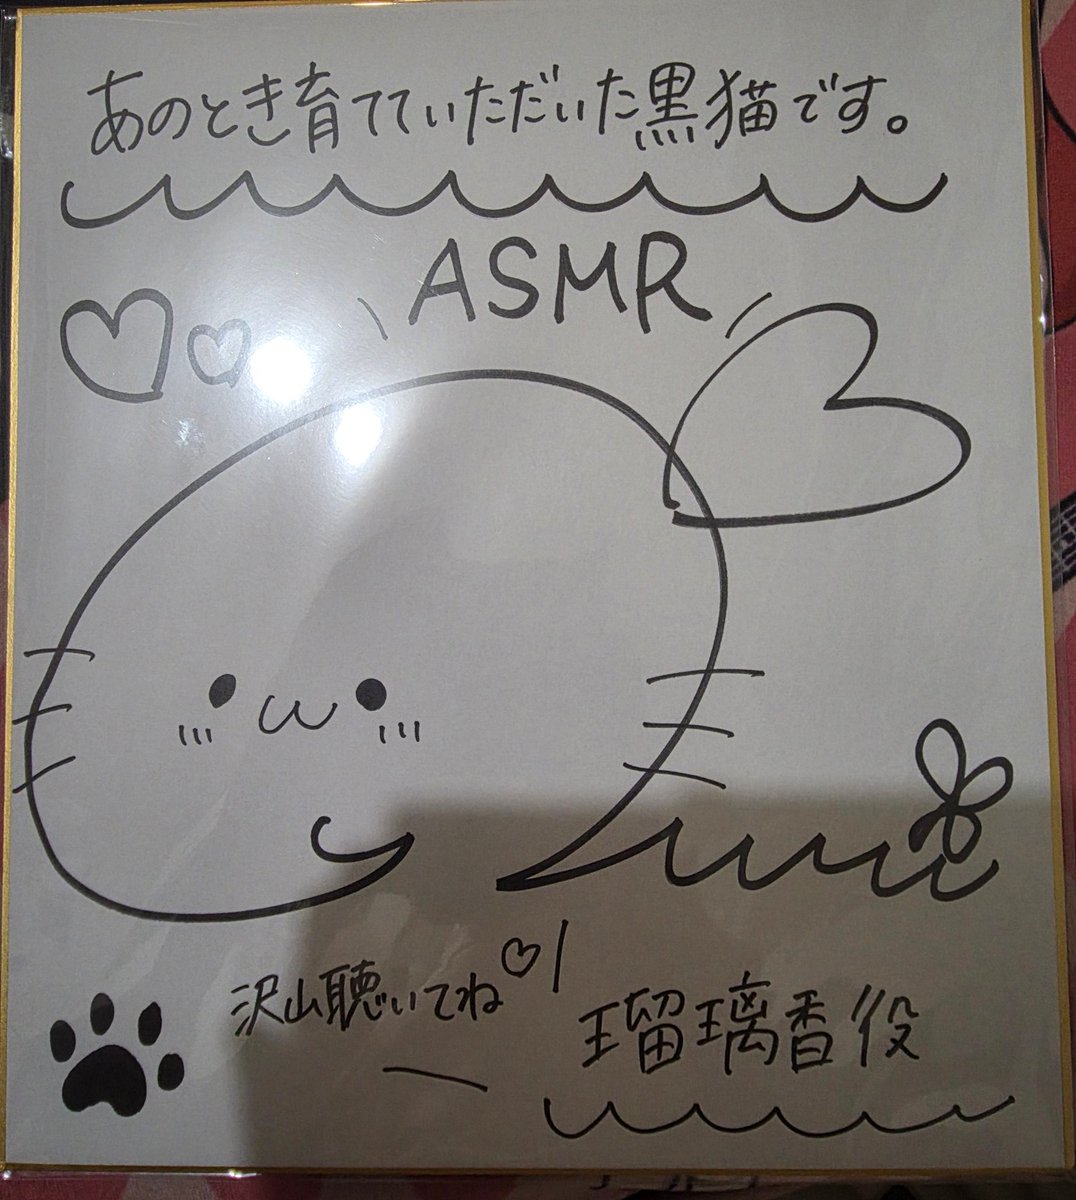 あのとき育てていただいた黒猫です。
ASMR
沢山聴いてね♡
瑠璃香役